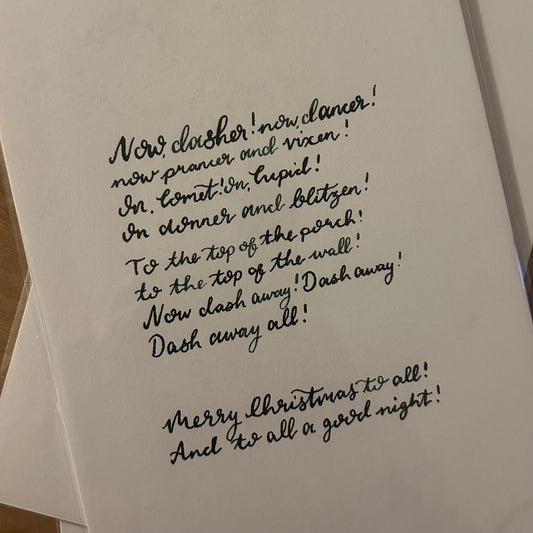 Now, dasher! now, dancer!
now prancer and vixen!
On, Comet! On, Cupid!
On donner and blitzen!
To the top of the porch!
to the top of the wall!
Now dash away! Dash away!
Dash away all!
Merry Christmas to all!
And to all a good night!